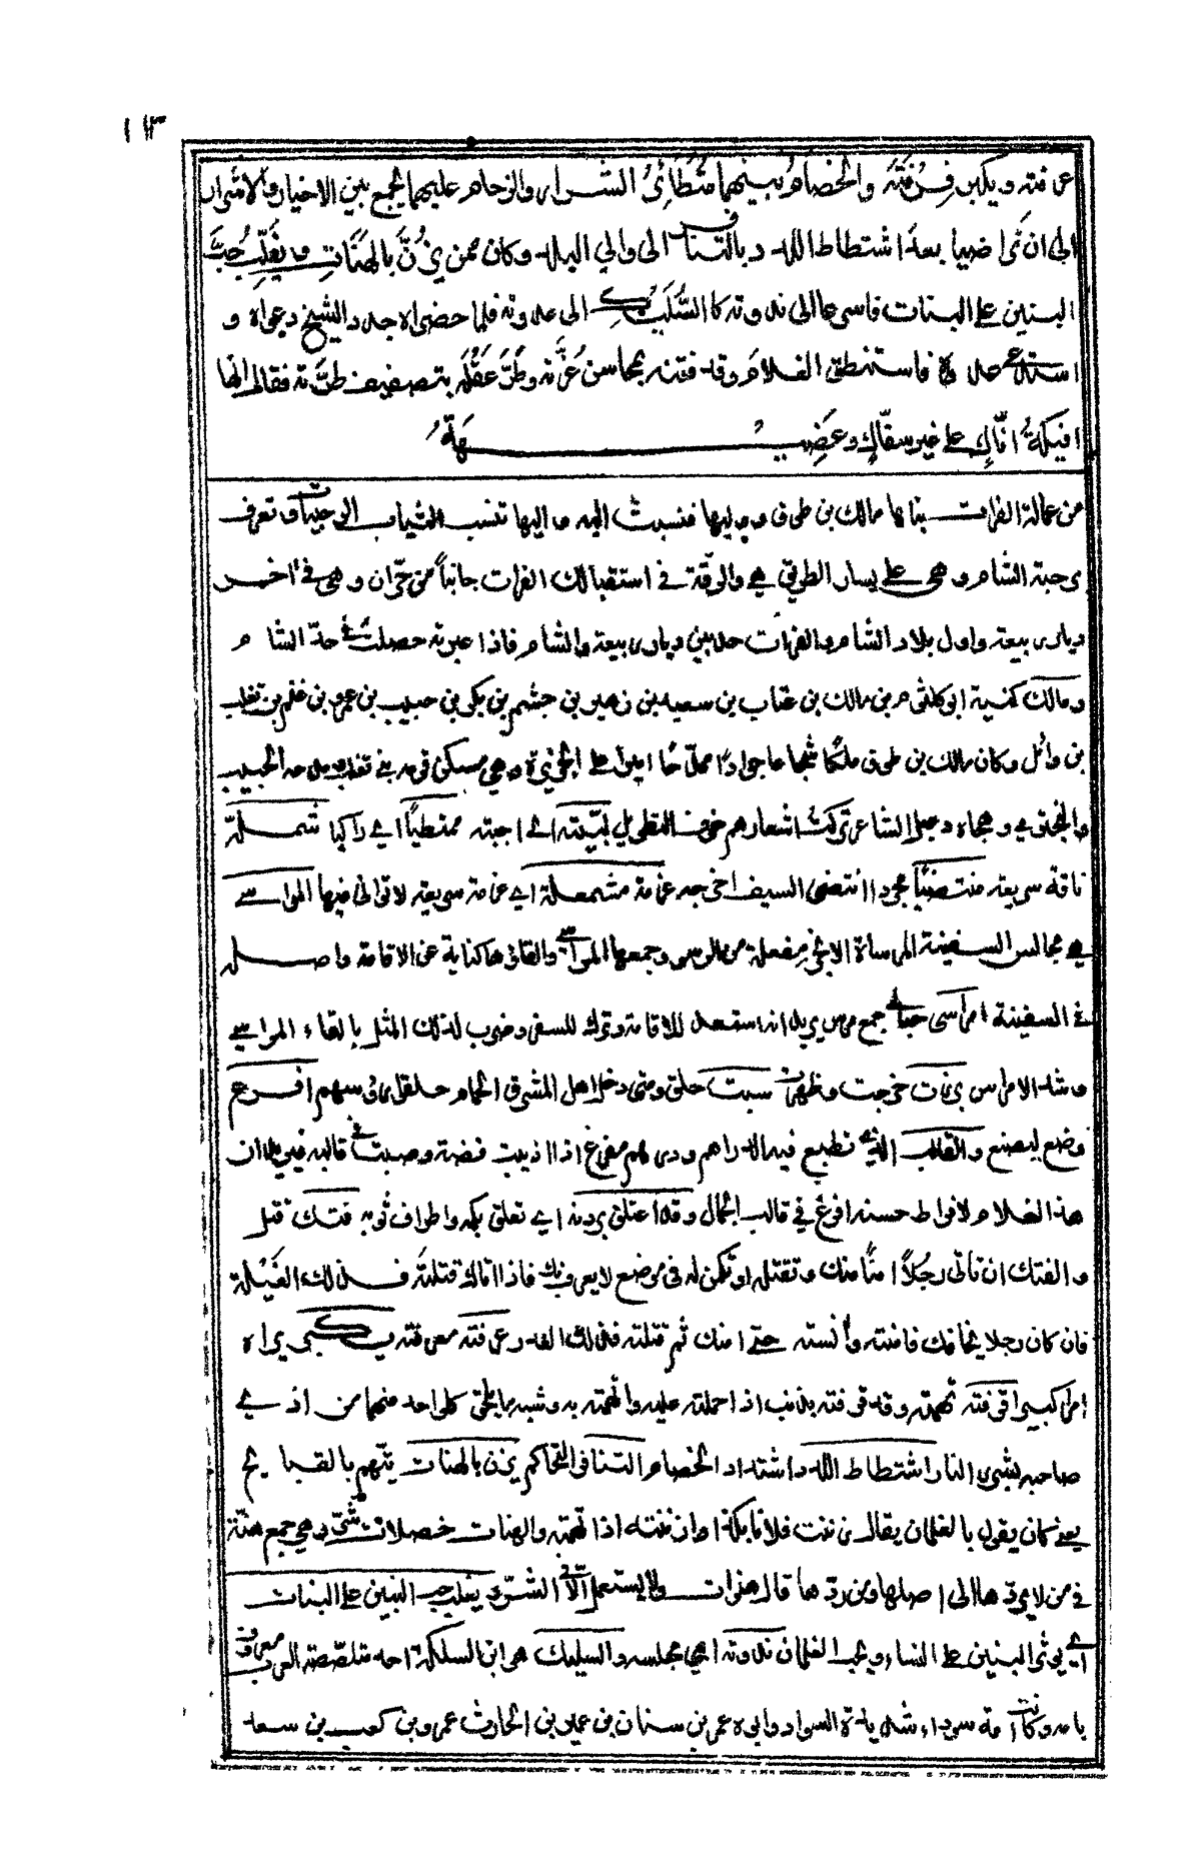 ١١٣
عرفته ويكبر قرفته والخصام بينهما متطائر الشرار والزحام عليهما يجمع بين الاخيار والاشرار
الى ان تراضيا بعد اشتطاط اللدد بالتنافر الى والي البلد وكان ممن يزن بالهنات ويغلب حب
البنين على البنات فاسرعا الى ندوته كالسليك الى عدوته فلما حضراه جدد الشيخ دعواه و
استدعى عدواه فاستنطق الغلام وقد فتنه بمحاسن غرته وطر عقله بتصفيف طرته فقال انها
افيكة افاك على غير سفاك وعضيهة
من عمالة الفرات بناها مالك بن طوق و وليها فنسبت اليه واليها تنسب الثياب الرحبيات وتعرف
برحبة الشام وهي على يسار الطريق هي والرقة في استقبالك الفرات جانبا من حران وهي في آخر
ديار ربيعة واول بلاد الشام والفرات حد بين ديار ربيعة والشام فاذا عبرته حصلت في حد الشام
ومالك كنيته ابو كلثوم بن مالك بن عتاب بن سعيد بن زهير بن جشم بن بكر بن حبيب بن عمرو بن غنم بن تغلب
بن وائل وكان مالك بن طوق ملكا شجاعا جوادا ممدحا اميرا على الجزيرة وهي مسكن قومه بني تغلب مدحه الحبيب
والبحتري وهجاه دعبل الشاعر تركت اشعارهم خوف التطويل لبيته اي اجبته ممتطيا اي راكبا شملة
ناقة سريعة منتضيا مجردا انتضى السيف اخرجه عزمة مشمعلة اي عزمة سريعة لا توانى فيها المراسي
هي مجالس السفينة المرساة الانجر مفعلة من الرسو وجمعها المراسي والقاؤها كناية عن الاقامة واصله
في السفينة امراسي حبالي جمع مرس يريد انه استعد للاقامة وترك السفر وضرب لذلك المثل بالقاء المراسي
وشد الامراس برزت خرجت وظهرت سبت حلق ومتى دخل اهل المشرق الحمام حلقوا رؤسهم افرغ
وضع ليصنع والقالب الذي تطبع فيه الدراهم ودرهم مفرغ اذا اذيبت فضة وصبت في قالبه فيريد ان
هذا الغلام لافراط حسنه افرغ في قالب الجمال وقد اعتلق بردنه اي تعلق بكمه واطراف ثوبه فتك قتل
والفتك ان تأتى رجلا امنا منك وتقتله او تكمن له في موضع لا يعرفك فاذا اتاك قتلته فذلك الغيلة
فان كان رجلا يخافك فامنته وآنسته حتى امنك ثم قتلته فذلك الغدر عرفته معرفته يكبر يراه
امرا كبيرا قرفته تهمته وقد قرفته بذنب اذا حملته عليه واتهمته به وشبه ما يلقى كل واحد منهما من اذية
صاحبه بشرر النار اشتطاط اللدد اشتداد الخصام التنافر التحاكم يزن بالهنات يتهم بالقبايح
يعنى كان يقول بالغلمان يقال زننت فلانا بكذا وازننته اذا اتهمته والهنات خصلات شر وهي جمع هنة
في من لا يرد ها الى اصلها ومن ردها قال هنوات ولا يستعمل الا في الشر يغلب حب البنين على البنات
اي يوثر البنين على النساء ويحب الغلمان ندوته اي مجلسه والسليك هو ابن السلكة احد متلصصة العرب معروف
بامه وكانت امة سوداء شديدة السواد وابوه عمر بن سنان بن عمير بن الحارث عمرو بن كعب بن سعد